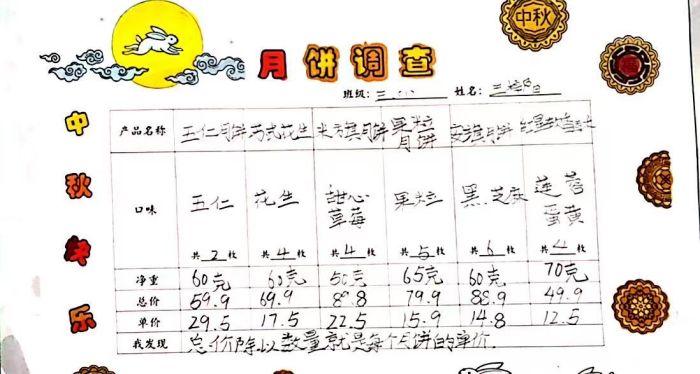 中秋
月饼调查
班级: 三 姓名:
中秋快乐
产品名称 五仁月饼 苏式花生 月饼 果粒月饼 月饼
口味 五仁 花生 甜心草莓 果粒 黑芝麻 莲蓉蛋黄
共2枚 共4枚 共4枚 共5枚 共6枚 共4枚
净重 60克 60克 50克 65克 60克 70克
总价 59.9 69.9 79.9 88.9 49.9
单价 29.5 17.5 22.5 15.9 14.8 12.5
我发现 总价除以数量就是每个月饼的单价.